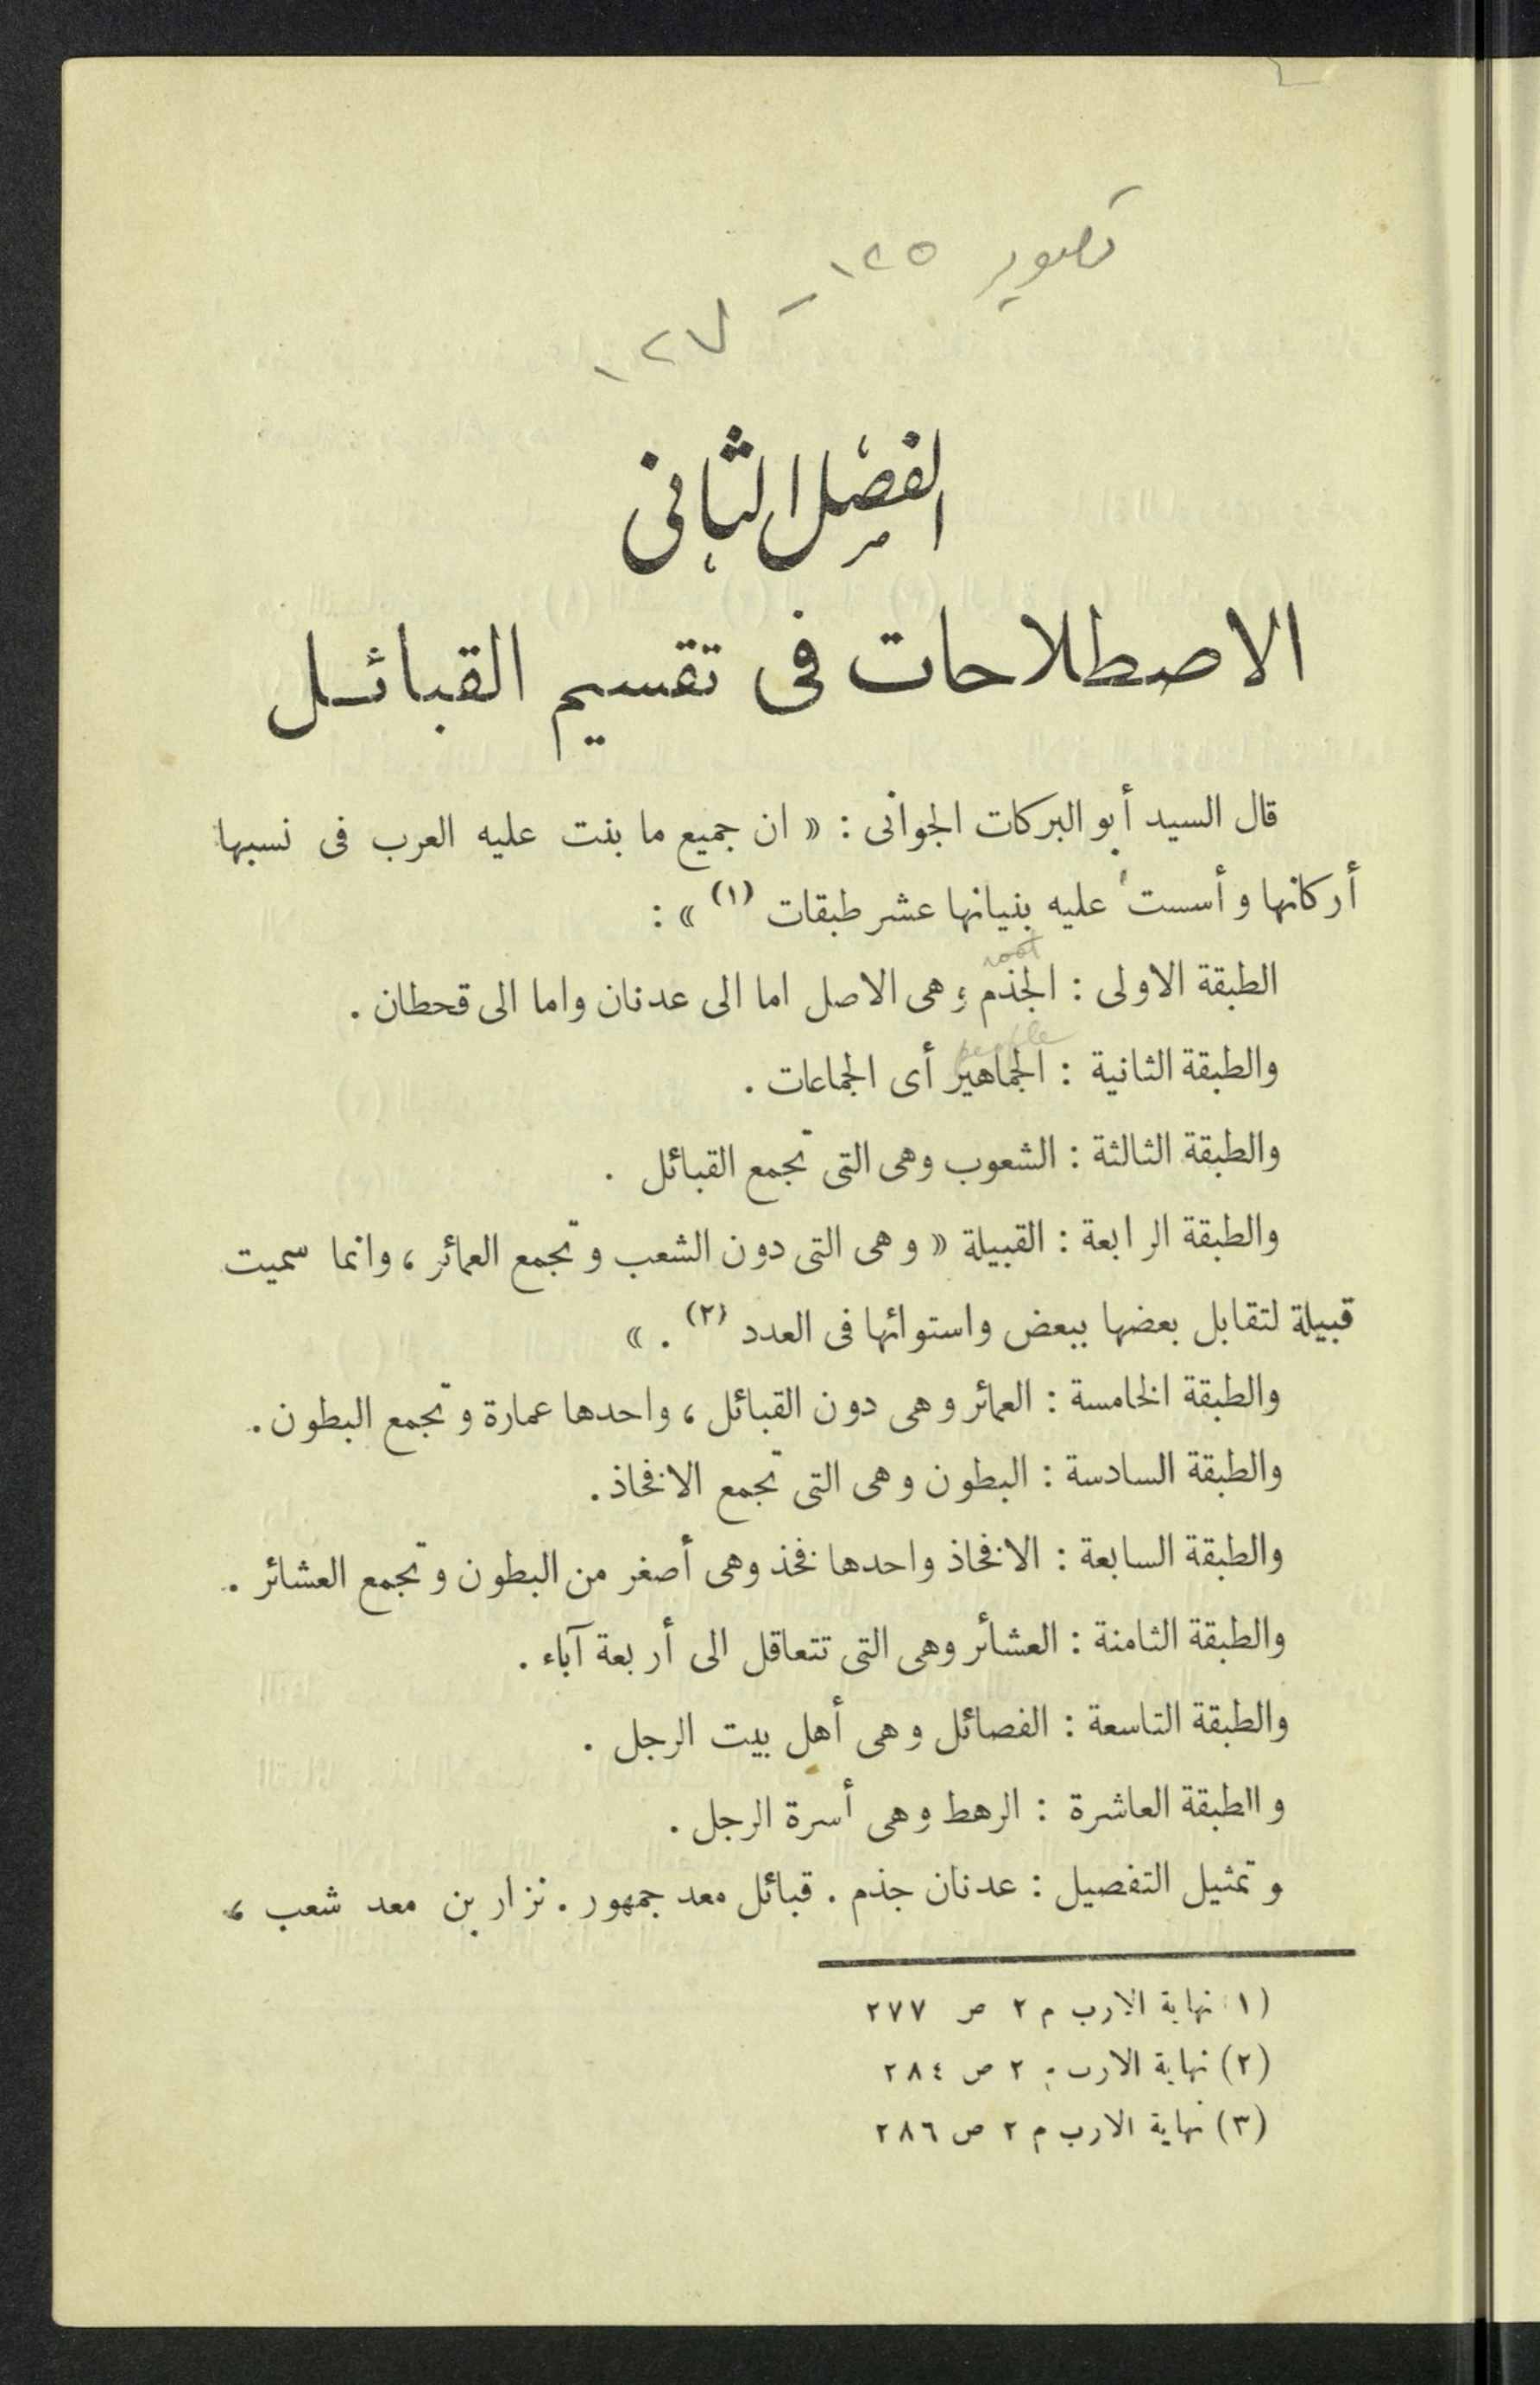 تصوير ١٢٥ –
١٢٧
الفصل الثانى
الاصطلاحات فى تقسيم القبائل
قال السيد أبو البركات الجوانى : « ان جميع ما بنت عليه العرب فى نسبها
أركانها وأسست عليه بنيانها عشر طبقات (١) » :
root
الطبقة الاولى : الجذم ؛ وهى الاصل اما الى عدنان واما الى قحطان .
people
والطبقة الثانية : الجماهير أى الجماعات .
والطبقة الثالثة : الشعوب وهى التى تجمع القبائل .
والطبقة الرابعة : القبيلة « وهى التى دون الشعب وتجمع العمائر ، وانما سميت
قبيلة لتقابل بعضها ببعض واستوائها فى العدد (٢) . »
والطبقة الخامسة : العمائر وهى دون القبائل ، واحدها عمارة وتجمع البطون .
والطبقة السادسة : البطون وهى التى تجمع الافخاذ .
والطبقة السابعة : الافخاذ واحدها فخذ وهى أصغر من البطون وتجمع العشائر .
والطبقة الثامنة : العشائر وهى التى تتعاقل الى أربعة آباء .
والطبقة التاسعة : الفصائل وهى أهل بيت الرجل .
والطبقة العاشرة : الرهط وهى أسرة الرجل .
وتمثيل التفصيل : عدنان جذم . قبائل معد جمهور . نزار بن معد شعب ،
(١) نهاية الارب م ٢ ص ٢٧٧
(٢) نهاية الارب م ٢ ص ٢٨٤
(٣) نهاية الارب م ٢ ص ٢٨٦